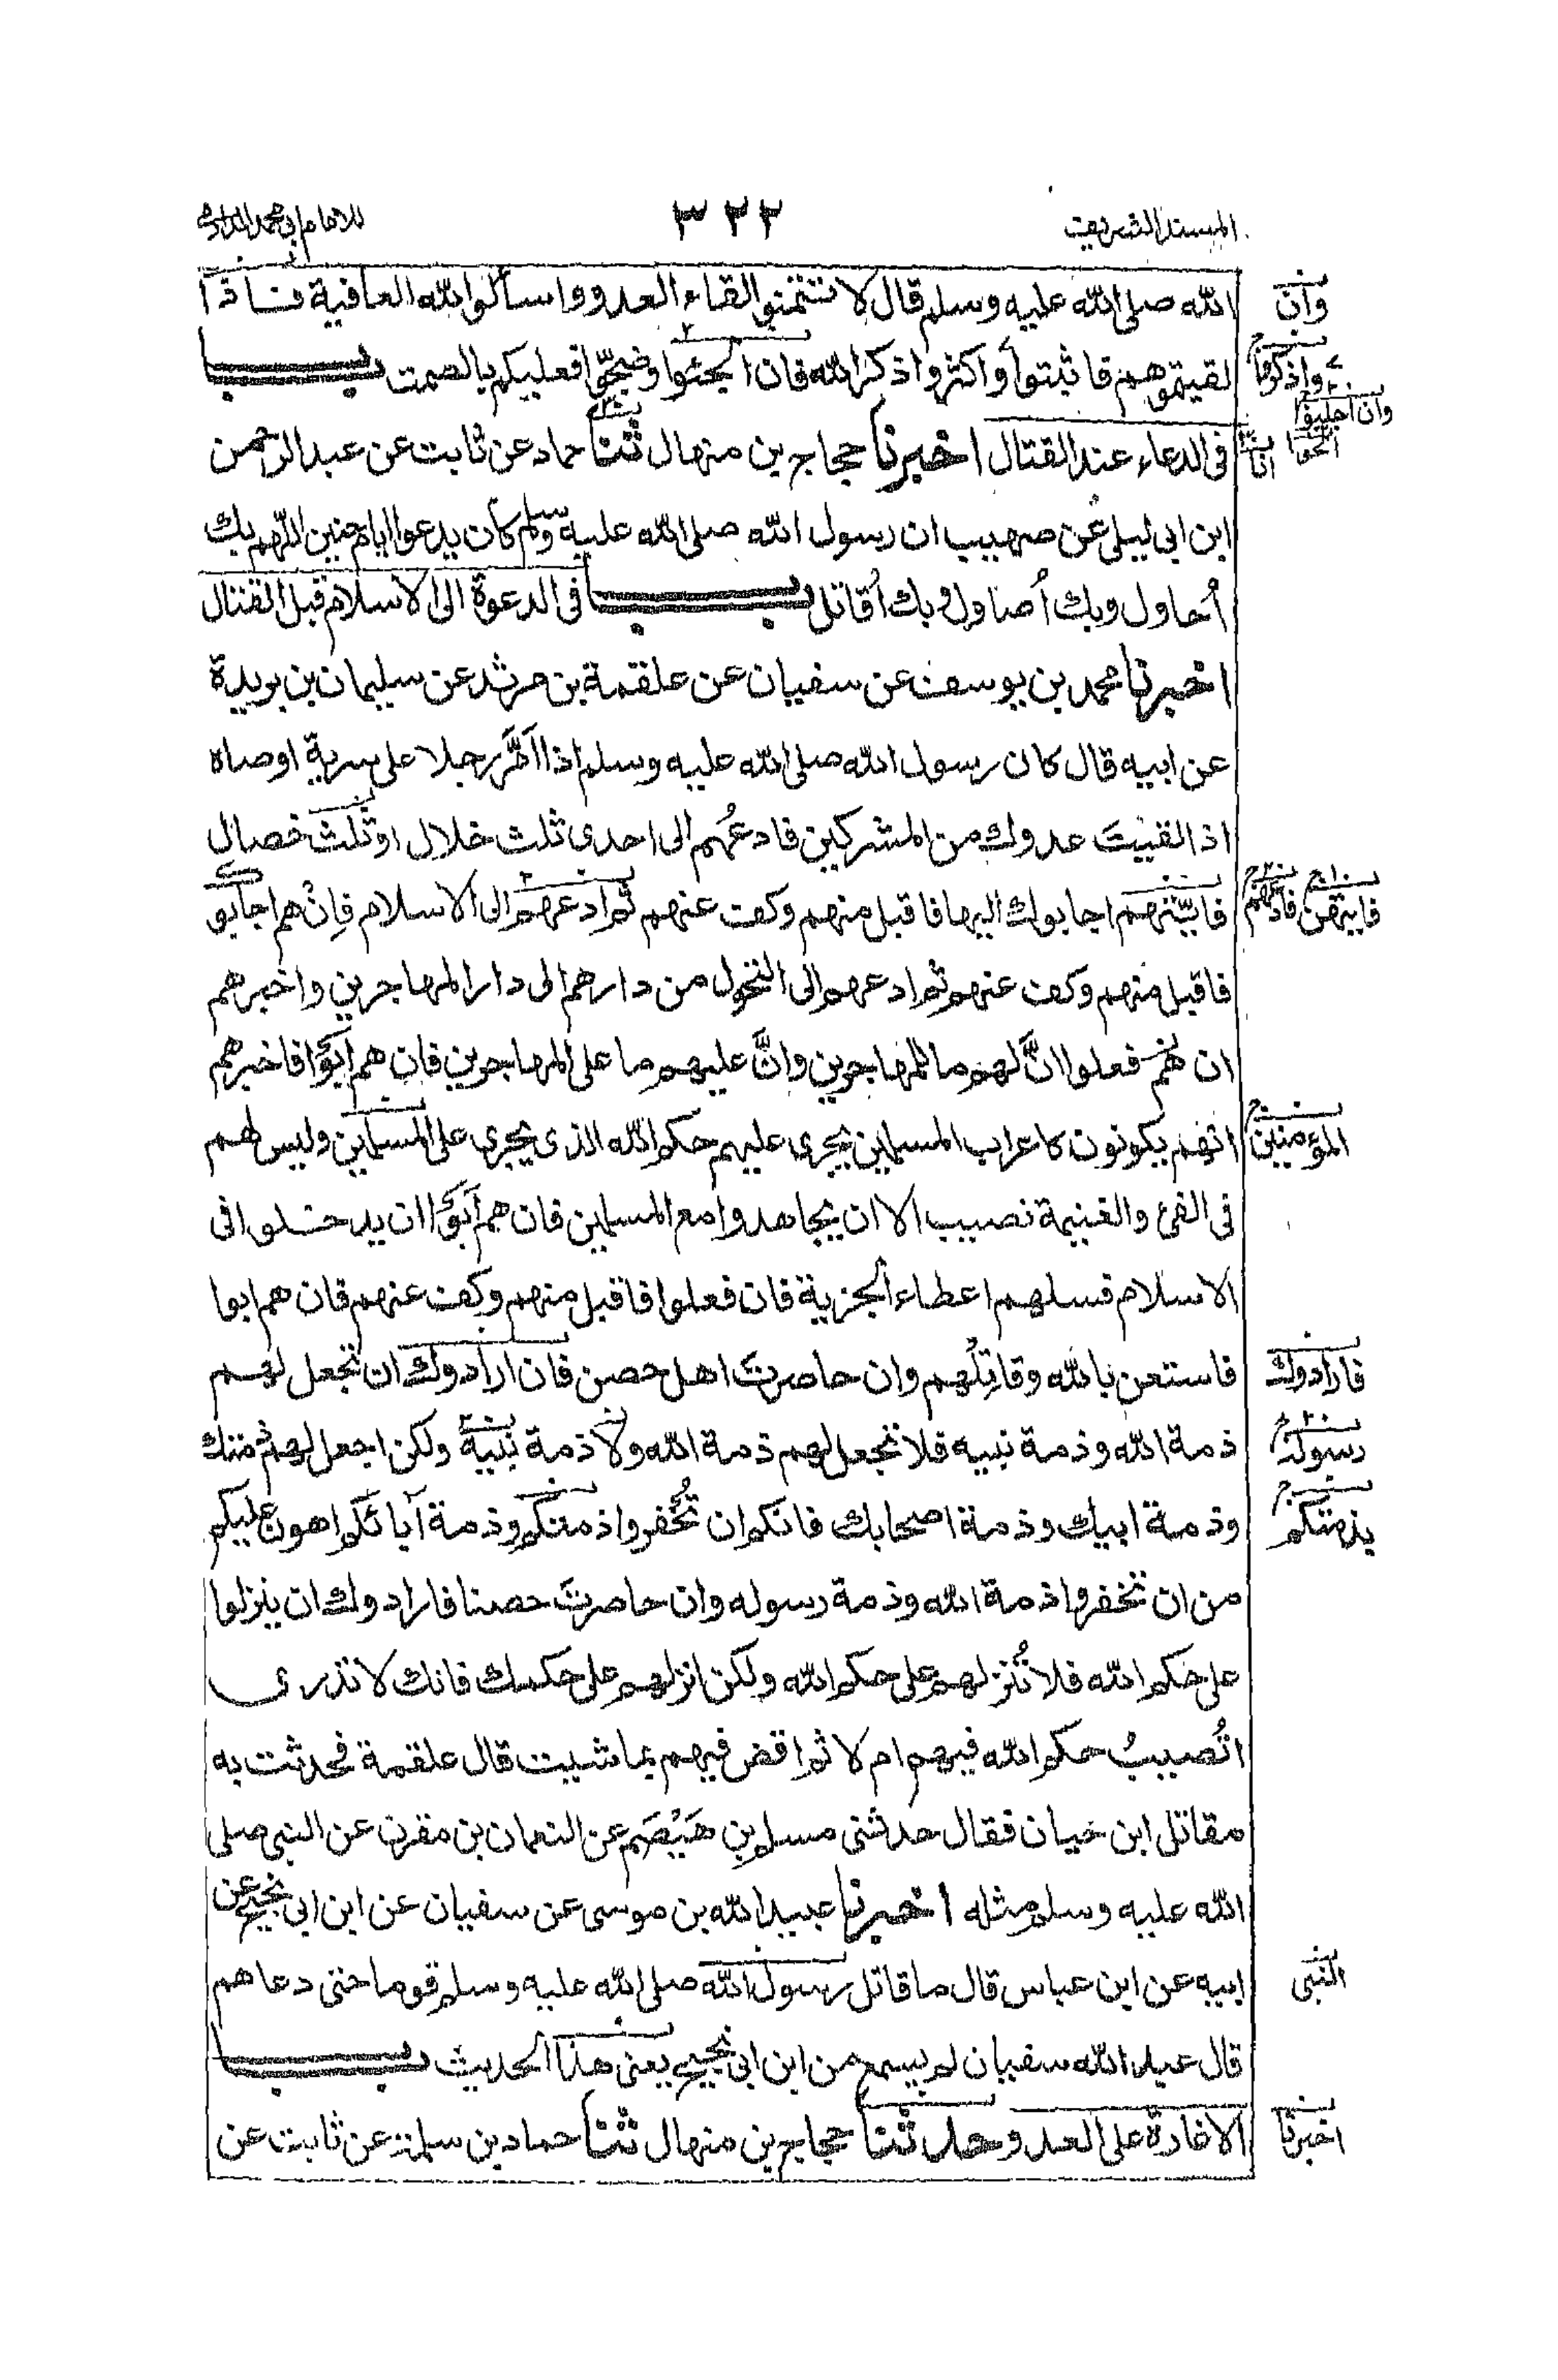 المسند الشريف ٣٢٢ للامام ابی محمد الدارمی
الله صلى الله عليه وسلم قال لا تتمنوا لقاء العدو واسألوا الله العافية فاذا
لقيتموهم فاثبتوا واكثروا ذكر الله فان اجلبوا وضجّوا فعليكم بالصمت باب
فی الدعاء عند القتال اخبرنا حجاج بن منهال ثنا حماد عن ثابت عن عبد الرحمن
ابن ابی ليلى عن صهيب ان رسول الله صلى الله عليه وسلم كان يدعو ايام حنين اللّهم بك
أُحاول وبك أُصاول وبك أُقاتل باب فی الدعوة الى الاسلام قبل القتال
اخبرنا محمد بن يوسف عن سفيان عن علقمة بن مرثد عن سليمان بن بريدة
عن ابيه قال كان رسول الله صلى الله عليه وسلم اذا امَّر رجلا على سرية اوصاه
اذا لقيتَ عدوك من المشركين فادعُهم الى احدى ثلث خلال او ثلث خصال
فايتهم اجابوك اليها فاقبل منهم وكف عنهم ثم ادعهم الى الاسلام فاِنْ هم اجابوك
فاقبل منهم وكف عنهم ثم ادعهم الى التحول من دارهم الى دار المهاجرين واخبرهم
ان هم فعلوا انَّ لهم ما للمهاجرين وانَّ عليهم ما على المهاجرين فان هم ابَوْا فاخبرهم
انهم يكونون كاعراب المسلمين يجری عليهم حكم الله الذی يجری على المسلمين وليس لهم
فی الفئ والغنيمة نصيب الا ان يجاهدوا مع المسلمين فان هم اَبَوْا ان يدخلوا فی
الاسلام فسلهم اعطاء الجزية فان فعلوا فاقبل منهم وكف عنهم فان هم ابوا
فاستعن بالله وقاتِلْهم وان حاصرتَ اهل حصن فان ارادوك ان تجعل لهم
ذمة الله وذمة نبيه فلا تجعل لهم ذمة الله ولا ذمة نبيه ولكن اجعل لهم ذمتك
وذمة ابيك وذمة اصحابك فانكم ان تُخْفِروا ذمتكم وذمة آبائكم اهون عليكم
من ان تخفروا ذمة الله وذمة رسوله وان حاصرتَ حصنا فارادوك ان ينزلوا
على حكم الله فلا تُنزلهم على حكم الله ولكن انزلهم على حكمك فانك لا تدری
اتُصيبُ حكم الله فيهم ام لا ثم اقض فيهم بما شيت قال علقمة فحدثت به
مقاتل ابن حيان فقال حدثنی مسلم بن هَيْصَم عن النعمان بن مقرن عن النبی صلى
الله عليه وسلم مثله اخبرنا عبيد الله بن موسى عن سفيان عن ابن ابی نجيح عن
ابيه عن ابن عباس قال ما قاتل رسول الله صلى الله عليه وسلم قوما حتى دعاهم
قال عبد الله سفيان لم يسمع من ابن ابی نجيح يعنی هذا الحديث باب
الاغارة على العدو حدثنا حجاج بن منهال ثنا حماد بن سلمة عن ثابت عن
وانّ
واذكروا
وان اجلبوا
انا
المؤمنين
فارادوك
رسوله
بذمتكم
النبی
اخبرنا